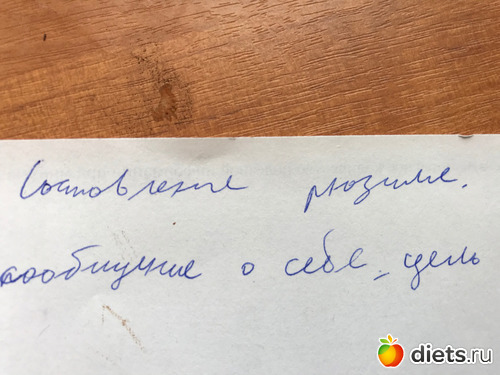 Состовление рюзиме.
сообщение о себе, цель
diets.ru